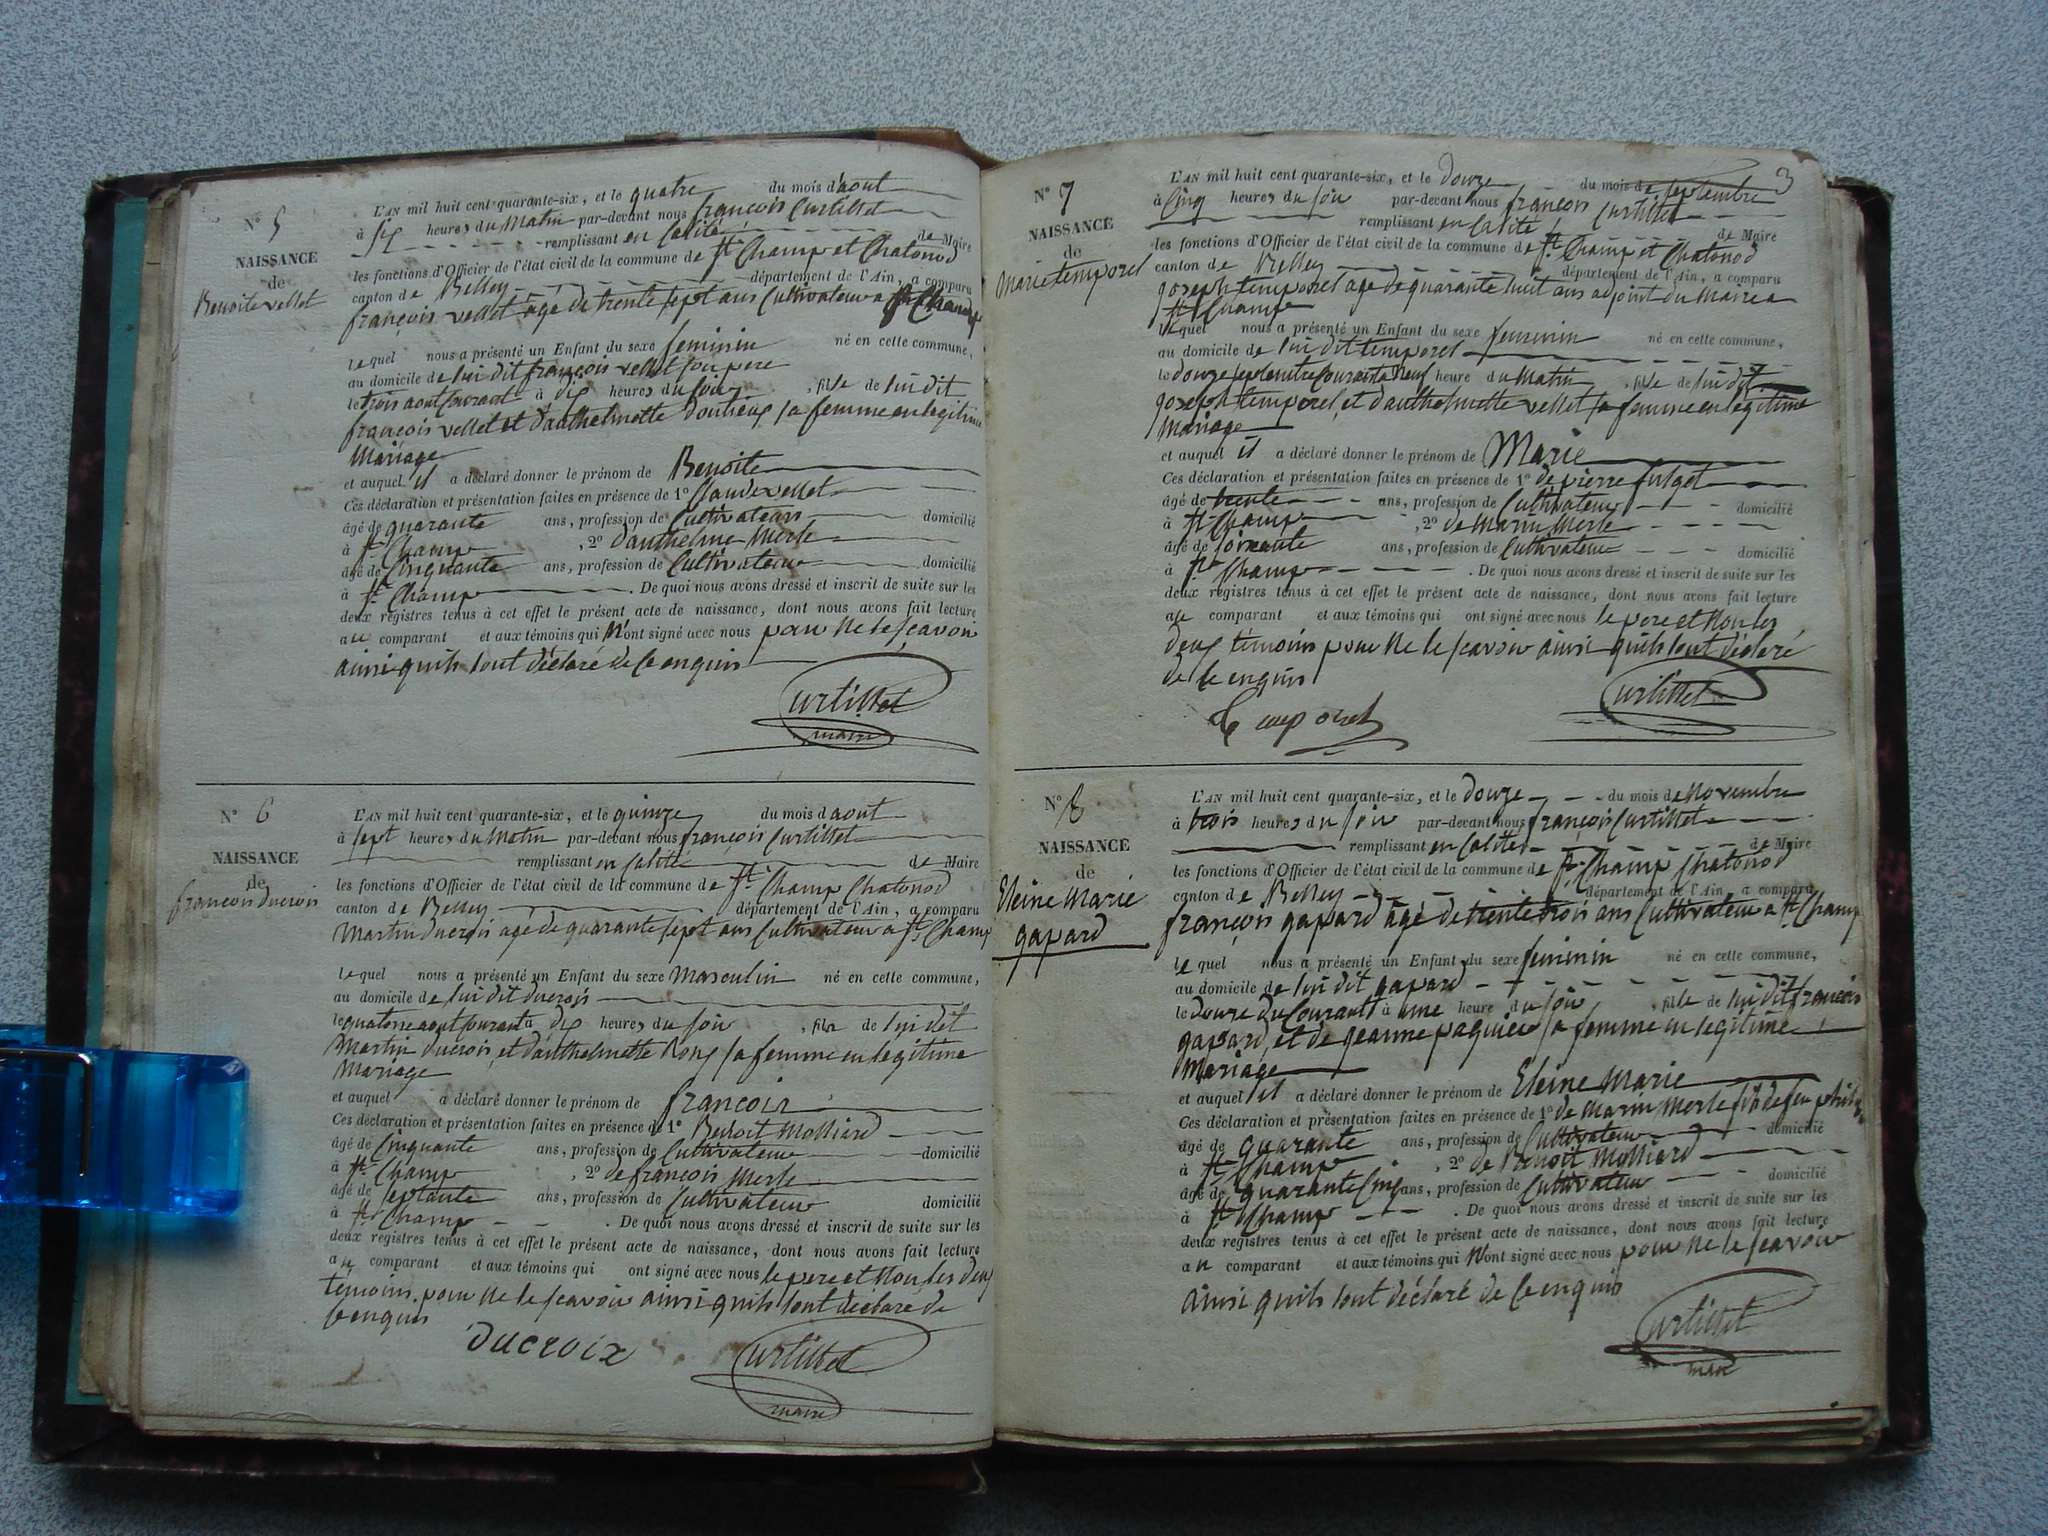 N° 5
NAISSANCE
de
Benoite vellet
L'AN mil huit cent quarante-six, et le quatre du mois d'aout
à six heures du Matin par-devant nous françois Curtillet
remplissant en Calité de Maire
les fonctions d'Officier de l'état civil de la commune de St. Champ et Chatonod
canton de Belley département de l'Ain, a comparu
françois vellet agé de trente sept ans Cultivateur a St Champ
lequel nous a présenté un Enfant du sexe feminin né en cette commune,
au domicile de lui dit françois vellet son pere
le trois aout Courant à dix heures du soir, fille de lui dit
françois vellet et d'anthelmette Doutieux sa femme en legitime
Mariage
et auquel il a déclaré donner le prénom de Benoite
Ces déclaration et présentation faites en présence de 1° Claude vellet
âgé de quarante ans, profession de Cultivateur domicilié
à St. Champ, 2° d'anthelme Merle
âgé de Cinquante ans, profession de Cultivateur domicilié
à St. Champ. De quoi nous avons dressé et inscrit de suite sur les
deux registres tenus à cet effet le présent acte de naissance, dont nous avons fait lecture
au comparant et aux témoins qui N'ont signé avec nous pour Ne le scavoir
ainsi quils l'ont déclaré de Ce enquis
Curtillet
maire
N° 6
NAISSANCE
de
françois ducrois
L'AN mil huit cent quarante-six, et le quinze du mois d'aout
à sept heures du Matin par-devant nous françois Curtillet
remplissant en Calité de Maire
les fonctions d'Officier de l'état civil de la commune de St. Champ Chatonod
canton de Belley département de l'Ain, a comparu
Martin ducrois agé de quarante sept ans Cultivateur a St. Champ
lequel nous a présenté un Enfant du sexe Masculin né en cette commune,
au domicile de lui dit ducrois
le quatorze aout Courant à dix heures du soir, fils de lui dit
Martin ducrois, et d'anthelmette Roux sa femme en legitime
Mariage
et auquel a déclaré donner le prénom de françois
Ces déclaration et présentation faites en présence de 1° Benoit Molliard
âgé de Cinquante ans, profession de Cultivateur domicilié
à St. Champ, 2° de françois Merle
âgé de septante ans, profession de Cultivateur domicilié
à St. Champ. De quoi nous avons dressé et inscrit de suite sur les
deux registres tenus à cet effet le présent acte de naissance, dont nous avons fait lecture
au comparant et aux témoins qui ont signé avec nous le pere et Non les deux
témoins pour Ne le scavoir ainsi quils l'ont déclaré de
Ce enquis
ducroix
Curtillet
maire
3
N° 7
NAISSANCE
de
Marie temporel
L'AN mil huit cent quarante-six, et le Douze du mois de septembre
à Cinq heures du soir par-devant nous françois Curtillet
remplissant en Calité de Maire
les fonctions d'Officier de l'état civil de la commune de St. Champ et Chatonod
canton de Belley département de l'Ain, a comparu
joseph temporel agé de quarante huit ans adjoint du Maire a
St. Champ
lequel nous a présenté un Enfant du sexe feminin né en cette commune,
au domicile de lui dit temporel
le douze septembre Courant à neuf heure du Matin, fille de lui dit
joseph temporel, et d'anthelmette vellet sa femme en legitime
Mariage
et auquel il a déclaré donner le prénom de Marie
Ces déclaration et présentation faites en présence de 1° de pierre fulget
âgé de trente ans, profession de Cultivateur domicilié
à St. Champ, 2° de Marin Merle
âgé de soixante ans, profession de Cultivateur domicilié
à St. Champ. De quoi nous avons dressé et inscrit de suite sur les
deux registres tenus à cet effet le présent acte de naissance, dont nous avons fait lecture
au comparant et aux témoins qui ont signé avec nous le pere et Non les
deux témoins pour Ne le scavoir ainsi quils l'ont déclaré
de Ce enquis
Temporel
Curtillet
N° 8
NAISSANCE
de
Eleine Marie
gapard
L'AN mil huit cent quarante-six, et le douze du mois de Novembre
à trois heures du soir par-devant nous françois Curtillet
remplissant en Calité de Maire
les fonctions d'Officier de l'état civil de la commune de St. Champ Chatonod
canton de Belley département de l'Ain, a comparu
françois gapard agé de trente trois ans Cultivateur a St. Champ
lequel nous a présenté un Enfant du sexe feminin né en cette commune,
au domicile de lui dit gapard
le douze du Courant à une heure du soir, fille de lui dit françois
gapard, et de jeanne paquier sa femme en legitime
Mariage
et auquel il a déclaré donner le prénom de Eleine Marie
Ces déclaration et présentation faites en présence de 1° de Marin Merle fils de feu
âgé de quarante ans, profession de Cultivateur domicilié
à St. Champ, 2° de Benoit Molliard
âgé de quarante Cinq ans, profession de Cultivateur domicilié
à St. Champ. De quoi nous avons dressé et inscrit de suite sur les
deux registres tenus à cet effet le présent acte de naissance, dont nous avons fait lecture
au comparant et aux témoins qui N'ont signé avec nous pour Ne le scavoir
ainsi quils l'ont déclaré de Ce enquis
Curtillet
maire